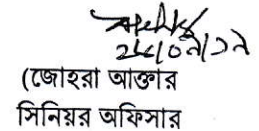 ২৮/০৭/১৭
(জোহরা আক্তার
সিনিয়র অফিসার